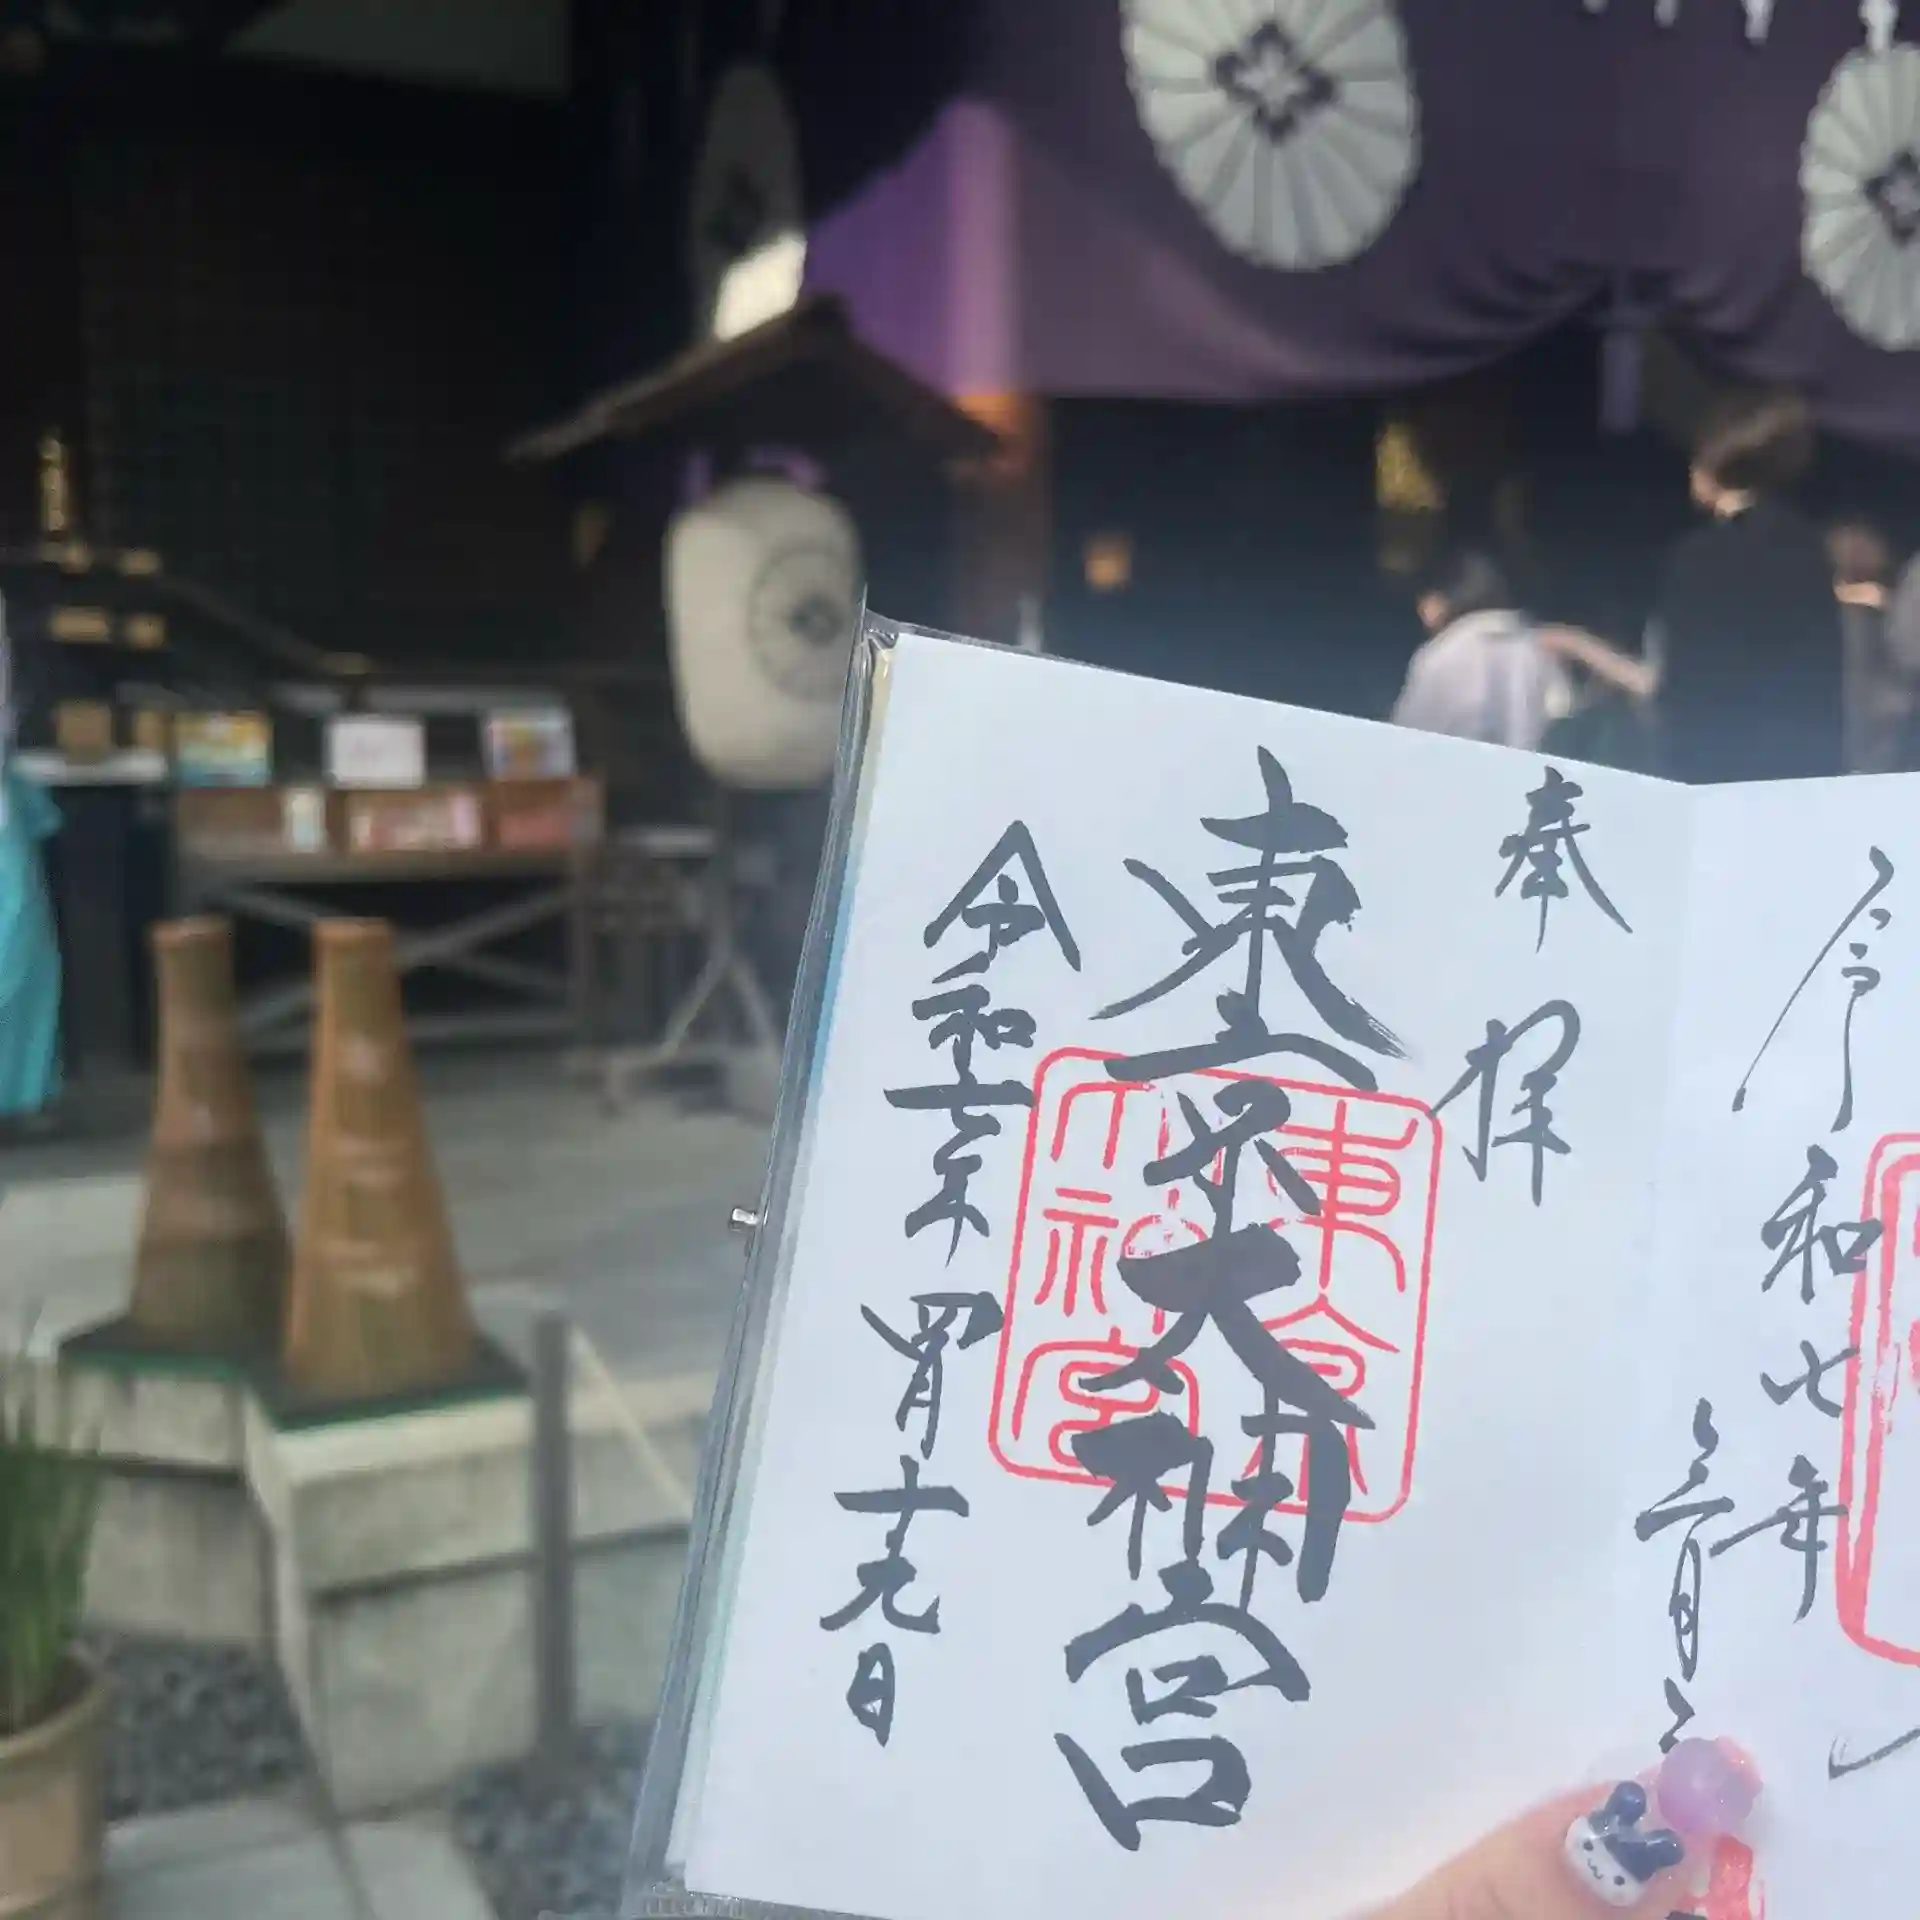 令和七年
三月
奉拝
東京大神宮
東京大神宮
令和七年四月十九日